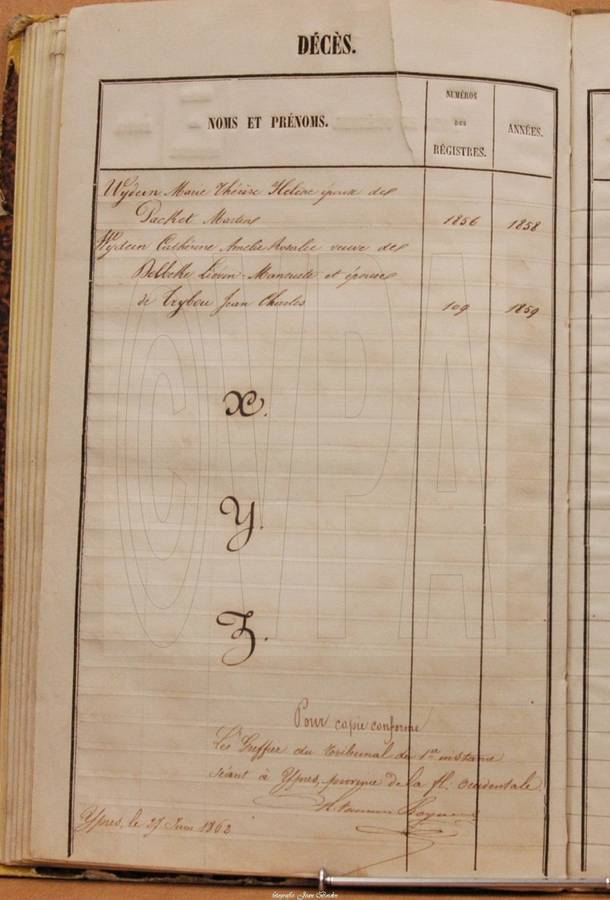 DÉCÈS.
NOMS ET PRÉNOMS.
NUMÉROS
DES
RÉGISTRES.
ANNÉES.
Wydein Marie Thérèse Helène épouse de
Packet Martin 1856 1858
Wydein Cathérine Amélie Rosalie veuve de
Liévin et épouse
de Trybou Jean Charles 109 1859
X.
Y.
Z.
Pour copie conforme
Le Greffier du Tribunal de 1re instance
séant à Ypres, province de la fl. occidentale
Ypres, le 27 Juin 1862
CVPA
fotografie Jean